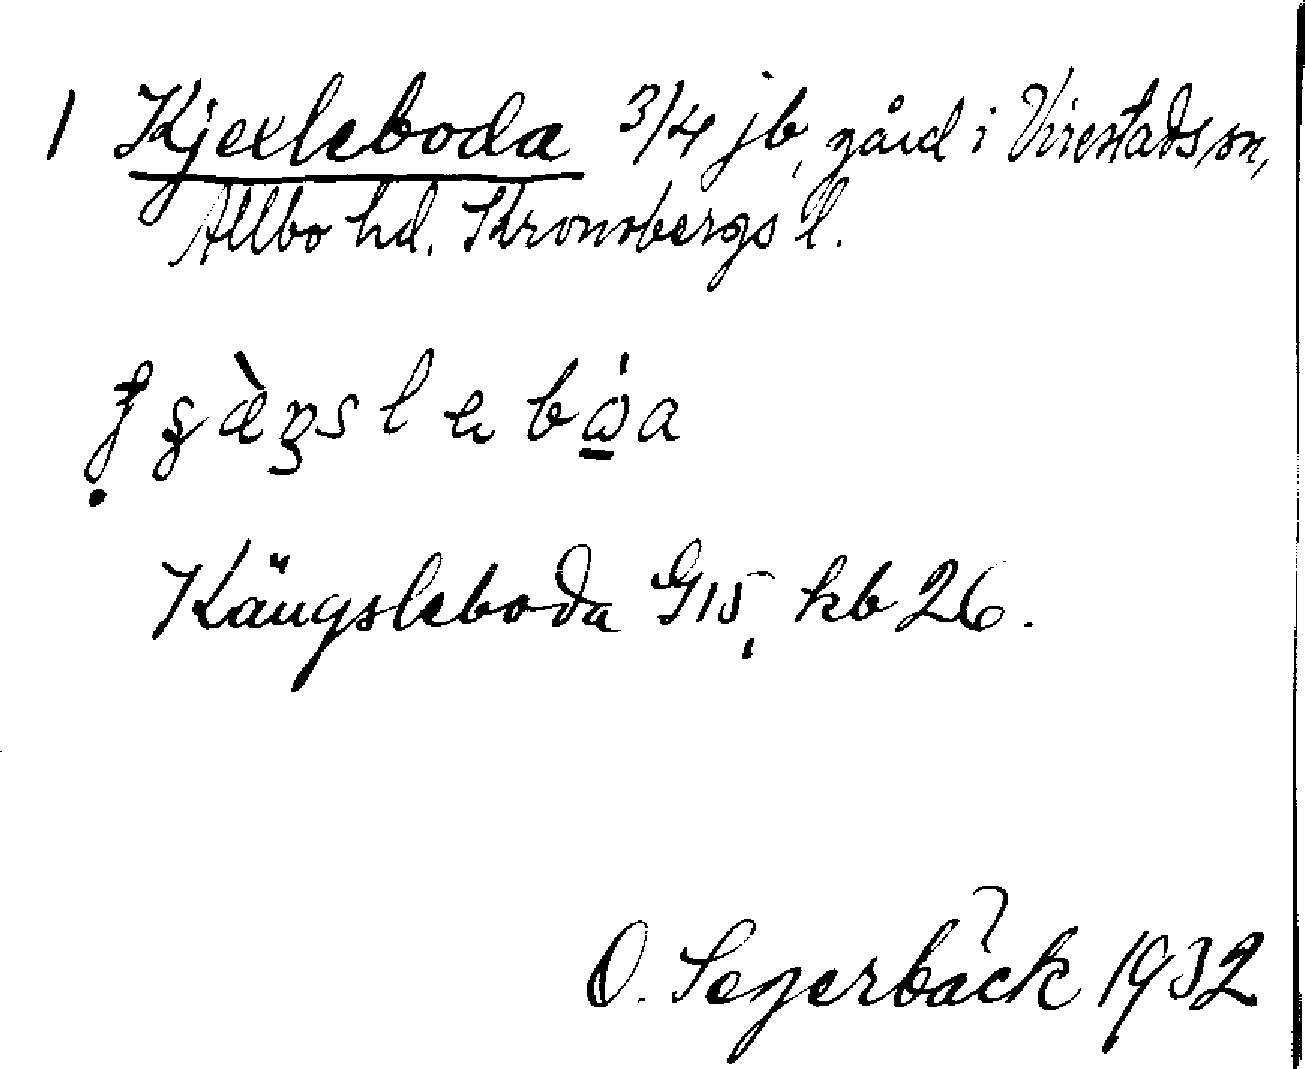 1 Kjexleboda 3/4 jb, gård i Virestads sn,
Allbo hd. Kronobergs l.
Kängsleboda G15, kb 26.
O. Segerbäck 1932